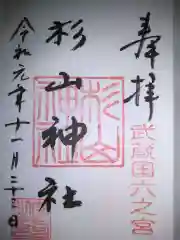 奉拝
武蔵国六之宮
杉山神社
杉山神社
令和元年十一月二十三日